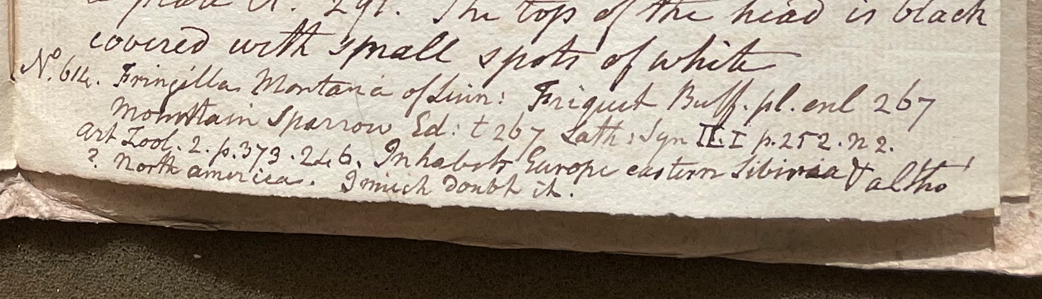 a plate N. 291. The top of the head is black
covered with small spots of white
No. 614. Fringilla Montana of Linn: Friquet Buff. pl. enl 267
Mountain Sparrow Ed: t 267 Lath: Syn II.I p. 252. n 2.
Art Zool. 2. p. 373. 246. Inhabets Europe eastern Sibiria & altho'
? North america. I much doubt it.